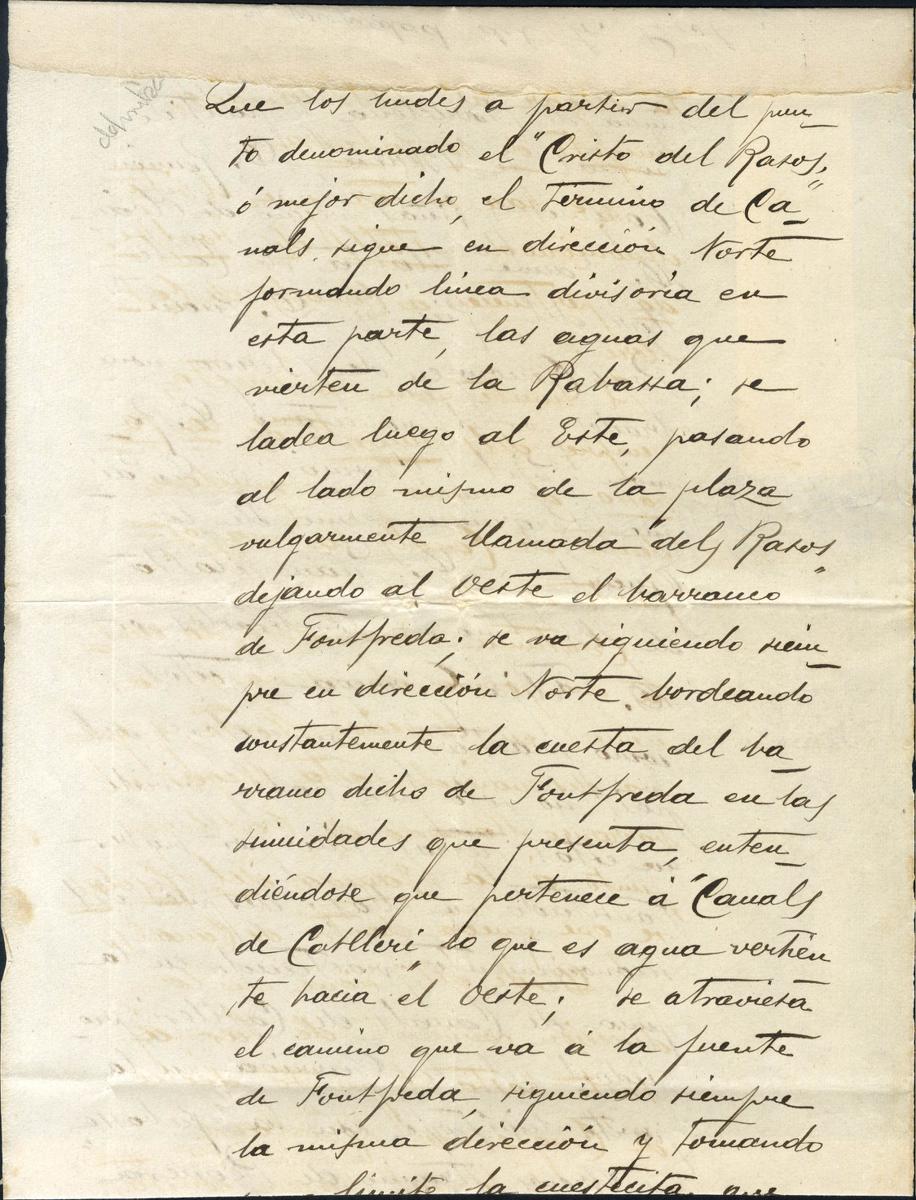 Que los lindes a partir del pun_
to denominado el "Cristo del Rasos,
ó mejor dicho, el Término de Ca"_
nals, sigue en dirección Norte
formando linea divisoria en
esta parte, las aguas que
vierten de la Rabassa; se
ladea luego al Este, pasando
al lado mismo de la plaza
vulgarmente llamada "dels Rasos
dejando al Oeste el barranco"
de Fontfreda; se va siguiendo siem_
pre en dirección Norte, bordeando
constantemente la cuesta del ba_
rranco dicho de Fontfreda en las
sinuidades que presenta, enten_
diéndose que pertenece á "Canals
de Catlleri lo que es agua vertien
te hacia" el Oeste; se atraviesa
el camino que va á la fuente
de Fontfreda, siguiendo siempre
la misma dirección y tomando
limite la cuestecita que